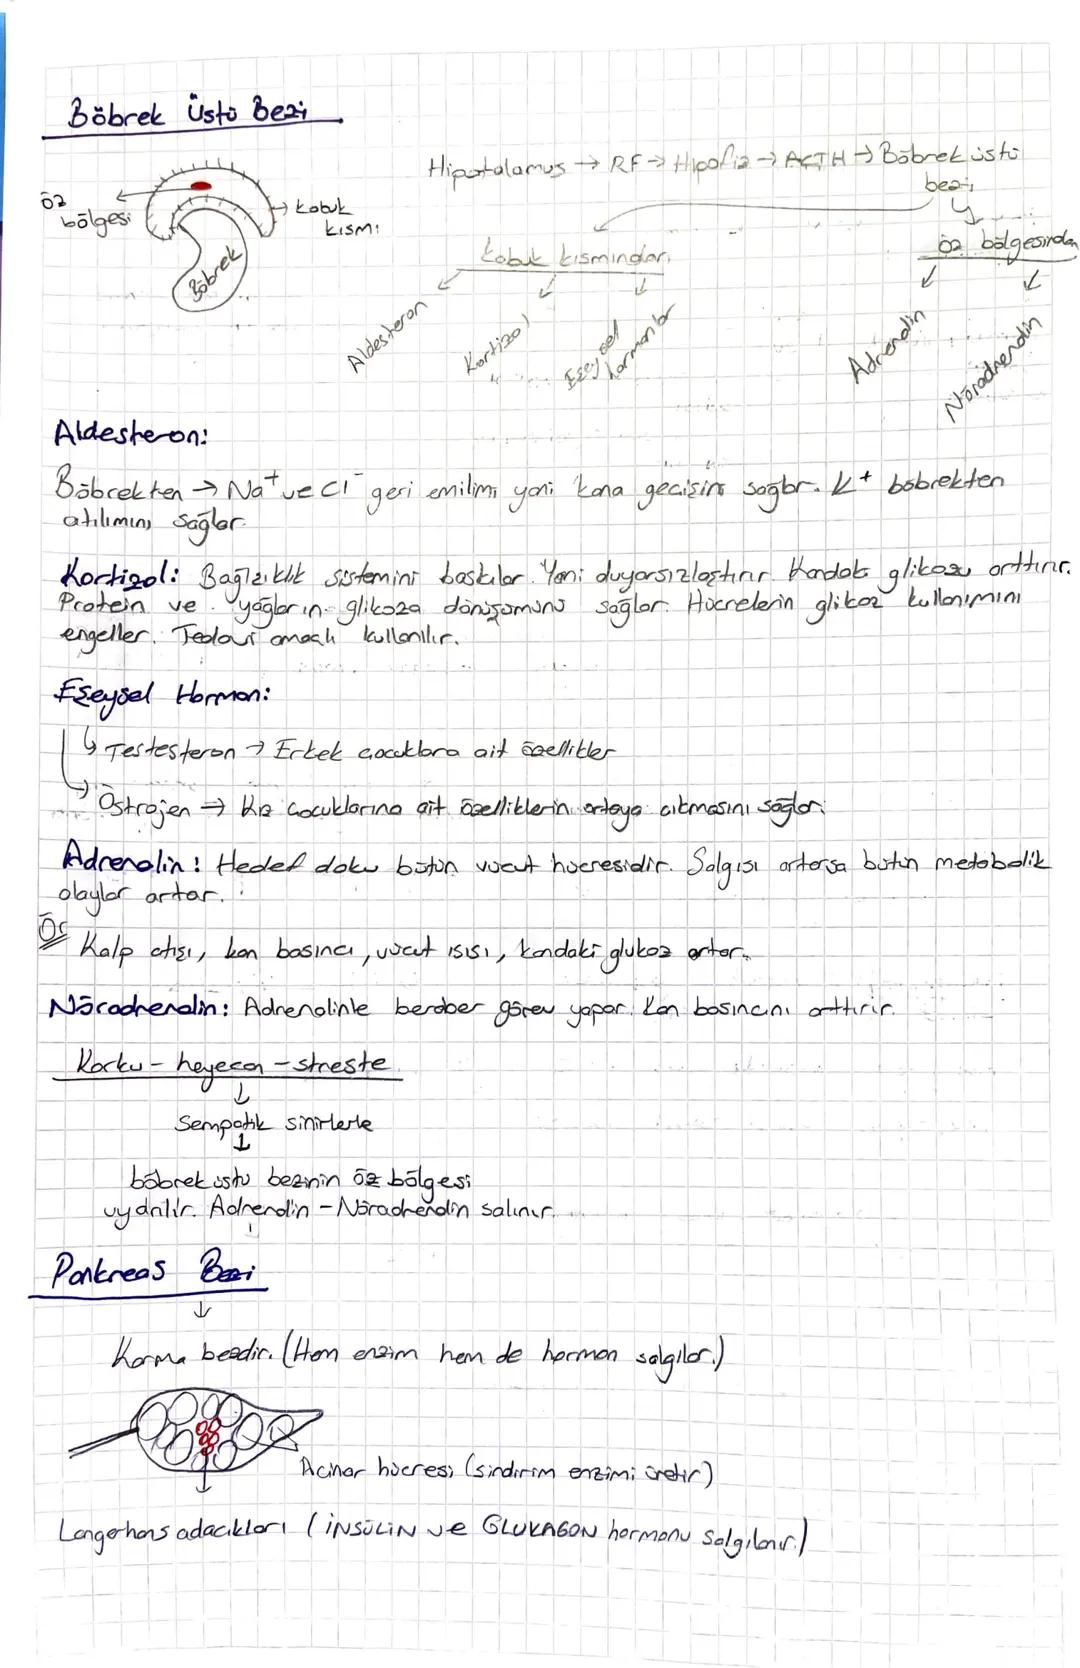 Böbrek Üstü Bezi
Hipotalamus → RF → Hipofiz → ACTH → Böbrek üstü
bezi
öz
bölgesi
kabuk
kısmı
Böbrek
kabuk kısmından
öz bölgesinden
Aldesteron
Kortizol
Eşeysel
hormonlar
Adrenalin
Nöradrenalin
Aldesteron:
Böbrekten → Na⁺ ve Cl⁻ geri emilimi yani kana geçişini sağlar. K⁺ böbrekten
atılımını sağlar.
Kortizol: Bağışıklık sistemini baskılar. Yani duyarsızlaştırır. Kandaki glikozu arttırır.
Protein ve yağların glikoza dönüşümünü sağlar. Hücrelerin glikoz kullanımını
engeller. Tedavi amaçlı kullanılır.
Eşeysel Hormon:
↳ Testesteron → Erkek çocuklara ait özellikler
→ Östrojen → Kız çocuklarına ait özelliklerin ortaya çıkmasını sağlar.
Adrenalin: Hedef doku bütün vücut hücresidir. Salgısı artarsa bütün metabolik
olaylar artar.
Ör
Kalp atışı, kan basıncı, vücut ısısı, kandaki glukoz artar.
Nöradrenalin: Adrenalinle beraber görev yapar. Kan basıncını arttırır.
Korku - heyecan - streste
↓
Sempatik sinirlerle
↓
böbrek üstü bezinin öz bölgesi
uyarılır. Adrenalin - Nöradrenalin salınır.
Pankreas Bezi
↓
Karma bezdir. (Hem enzim hem de hormon salgılar.)
Acinar hücresi (sindirim enzimi üretir)
Langerhans adacıkları (İNSÜLİN ve GLUKAGON hormonu salgılanır.)